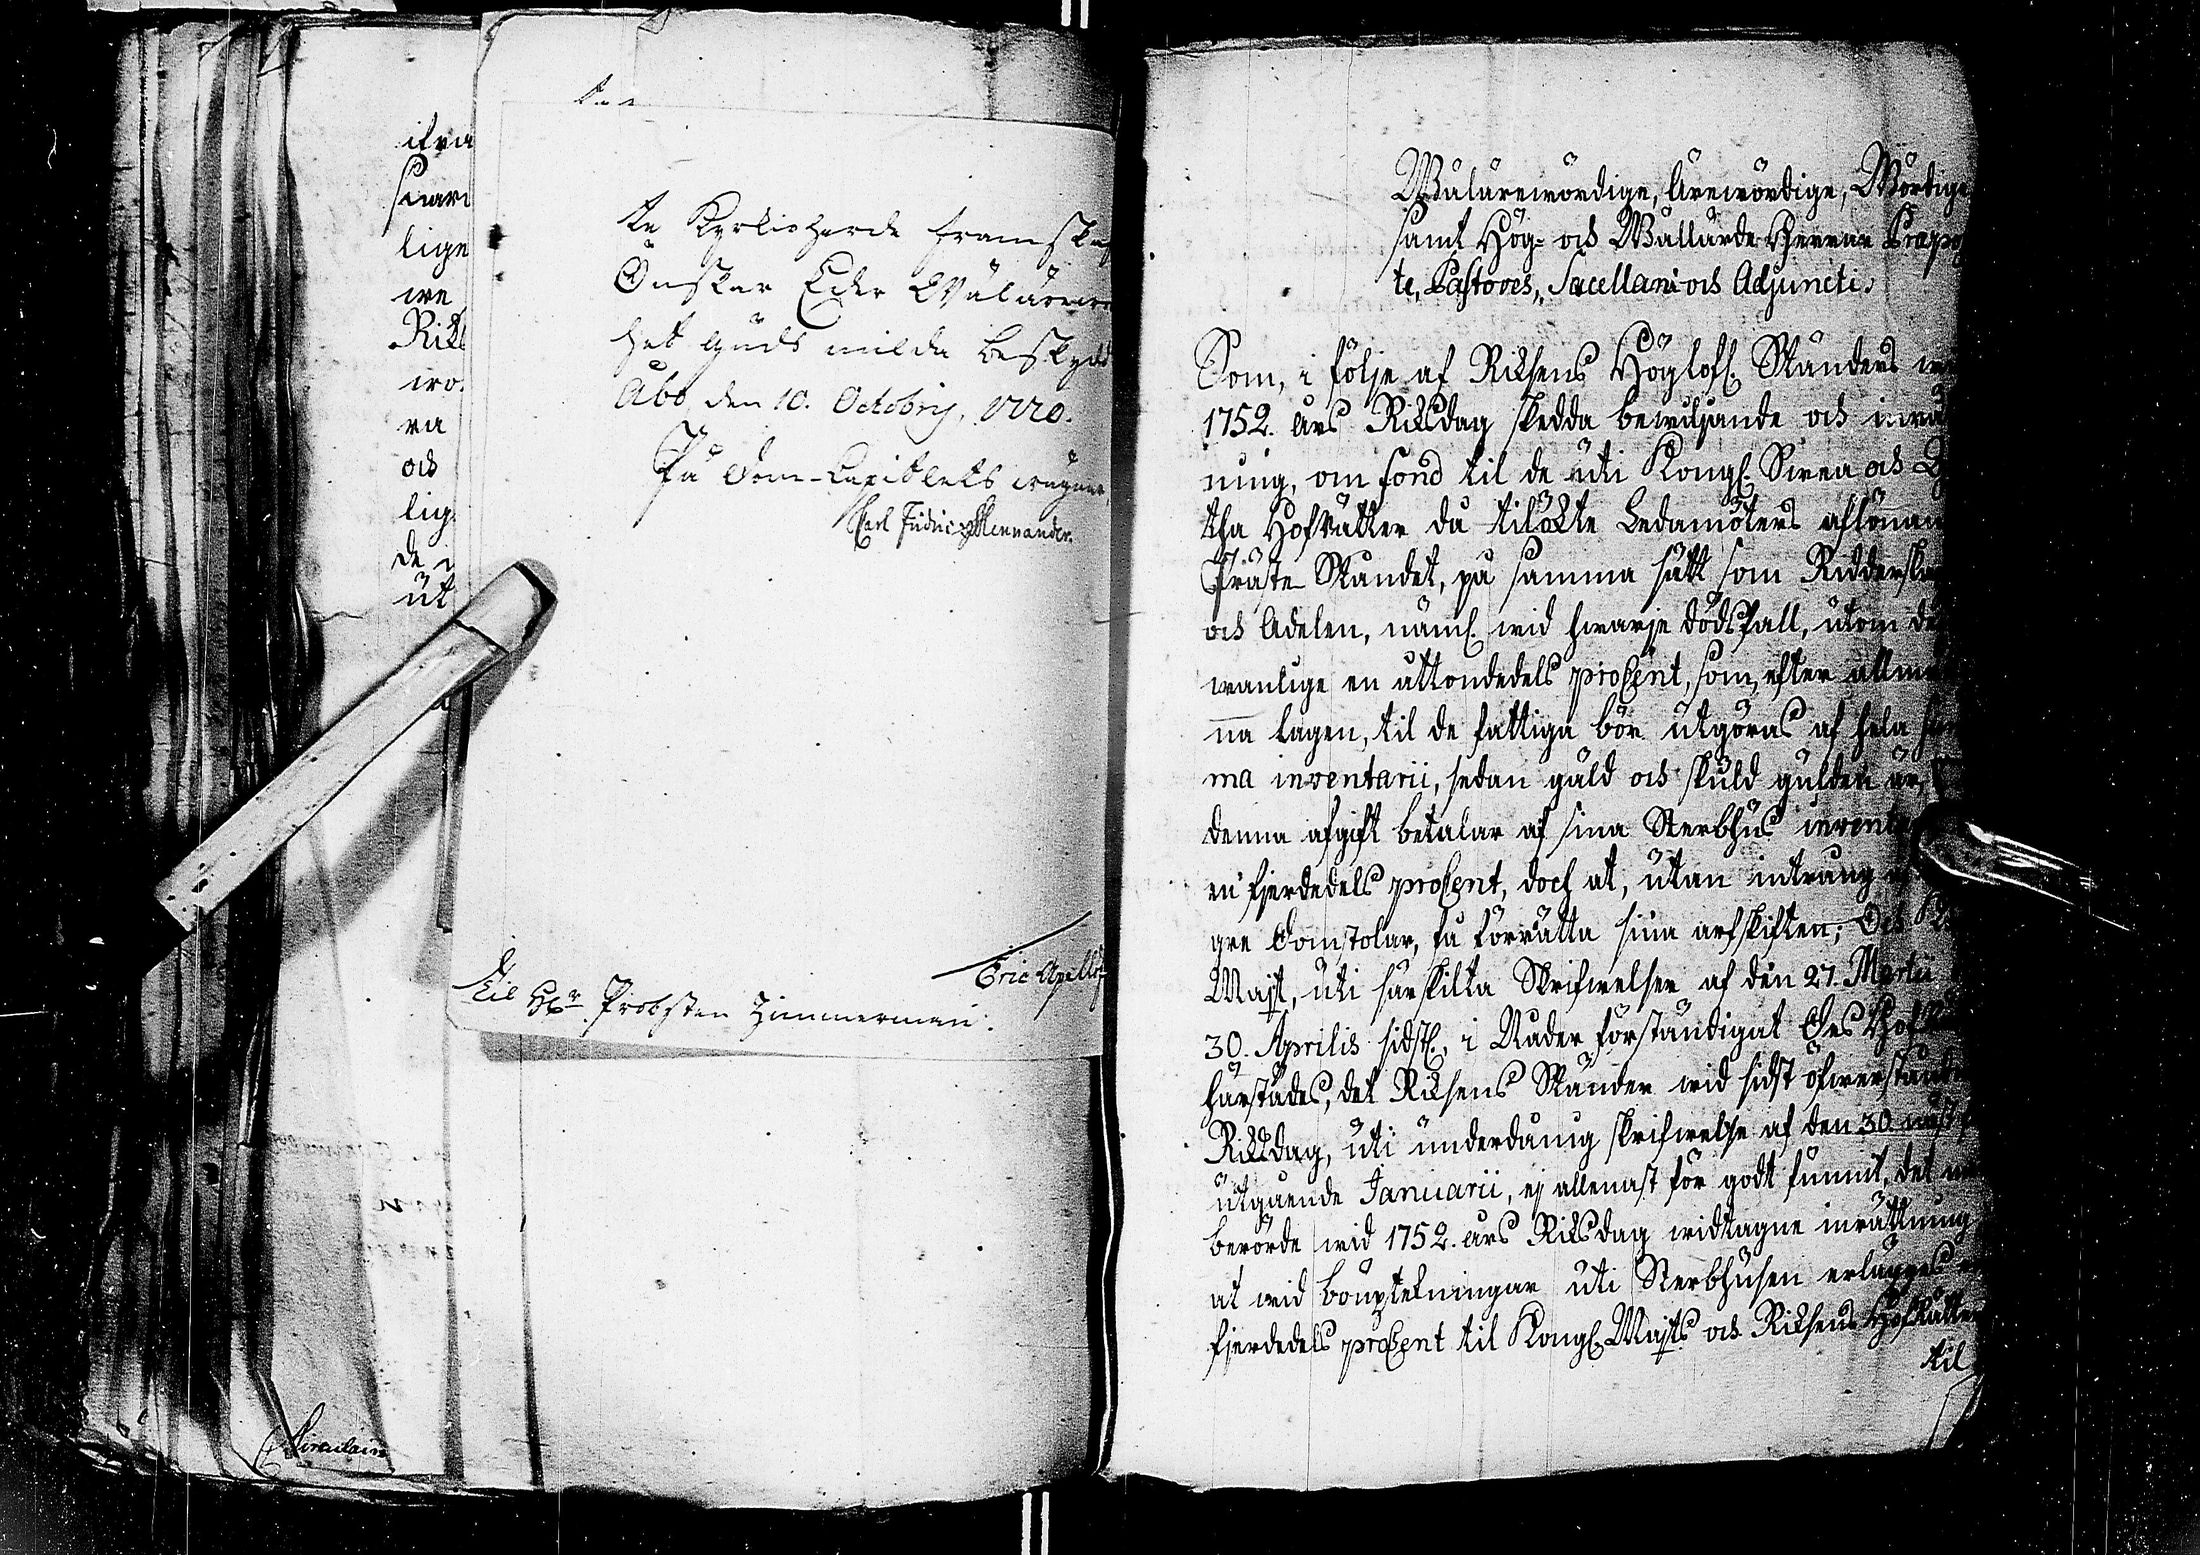 ifra
swari
lige
we
Riks
wo
ra
och
lig
de
ut
Circulaire
te Kyrkioherde framska
Önskar Eder Wälärew
het Guds milda beskydd
Åbo den 10. Octobris, 1770.
På Dom-Capitlets wägnar
Carl Fridric Mennander.
Eric Apell
Til Hr. Probsten Zimmerman.
Wälärewördige, Ärewördige, Wördige
samt Hög- och Wällärde Herrar Præposi
te, Pastores, Sacellani och Adjuncti.
Som, i följe af Riksens Höglofl. Ständers wi
1752. års Riksdag skedda bewiljande och inrät
ning, om fond til de uti Kongl. Swea och G
tha Hofrätter då tilökte Ledamöters aflönan
Präste Ståndet, på samma sätt som Ridderska
och Adelen, näml. wid hwarje dödsfall, utom de
wanlige en åttondedels procent, som, efter allmä
na lagen, til de fattiga bör utgöras af hela sum
ma inventarii, sedan gäld och skuld gulden är,
denna afgift betalar af sina Sterbhus inventa
en fjerdedels procent, doch at, utan intrång af
gre Domstolar, få förrätta sina arfskiften; Och K
Majt, uti särskilta Skrifwelser af den 27. Martii
30. Aprilis sidstl., i Nåder förständigat Des Hof
härstädes, det Riksens Ständer wid sidst öfwerstånd
Riksdag, uti underdånig skrifwelse af den 30
utgående Januarii, ej allenast för godt funnit, det
berörde wid 1752. års Riksdag widtagne inrättning
at wid bouptekningar uti Sterbhusen erlägges
fjerdedels procent til Kongl. Majts och Riksens Hofrätter
til